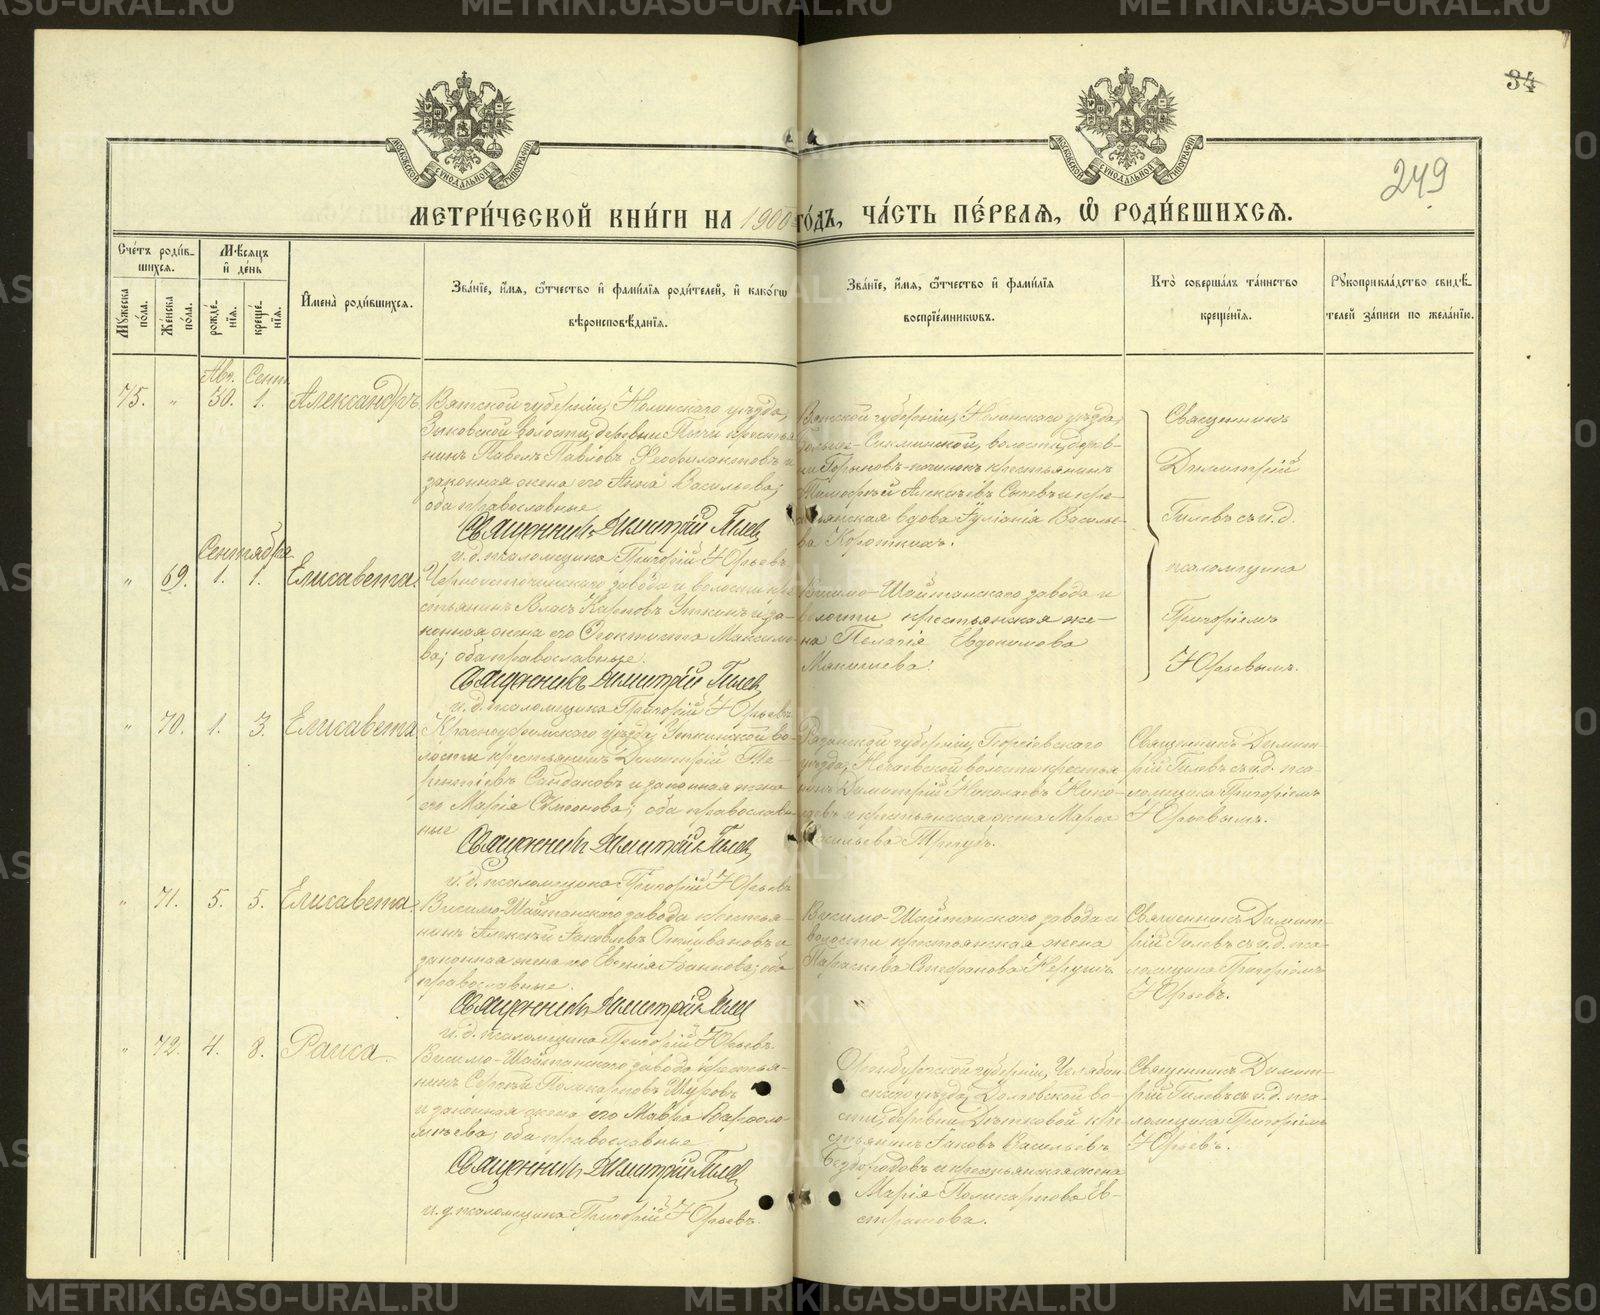 34
249
МЕТРИ́ЧЕСКОЙ КНИ́ГИ НА 1900 ГО́ДЪ, ЧА́СТЬ ПЕ́РВАЯ, Ѽ РОДИ́ВШИХСЯ.
Сче́тъ роди́в-
шихся.
Мꙋжеска по́ла.
Же́нска по́ла.
Мѣ́сяцъ
и҆ де́нь
рожде́нїя.
креще́нїя.
И҆мена̀ роди́вшихся.
Зва́нїе, и҆́мя, ѻ҆́тчество и҆ фами́лїя роди́телей, и҆ како́гѡ
вѣроисповѣ́данїя.
Зва́нїе, и҆́мя, ѻ҆́тчество и҆ фами́лїя
воспрїе́мникѡвъ.
Кто̀ соверша́лъ та́инство
креще́нїя.
Рꙋкоприкла́дство свидѣ́-
телей за́писи по жела́нїю.
Авг. Сент.
75. " 30. 1. Александръ
Вятской губерніи, Нолинскаго уѣзда,
Зыковской волости, деревни Пичи крестья-
нинъ Павелъ Павловъ Феофилактовъ и
законная жена его Анна Васильева;
оба православные.
Священникъ Димитрій Гилевъ
и. д. псаломщика Григорій Юрьевъ
Вятской губерніи, Нолинскаго уѣзда,
волости, дерев-
ни починокъ крестьянинъ
Тимофѣй Алексѣевъ и кре-
стьянская вдова Іуліанія Василье-
ва Короткихъ.
Священникъ
Димитрій
Гилевъ съ и. д.
псаломщика
Григоріемъ
Юрьевымъ.
Сентября
" 69. 1. 1. Елисавета.
Черноисточинскаго завода и волости кре-
стьянинъ Власъ Карповъ Уткинъ и за-
конная жена его Феоктиста Максимо-
ва; оба православные.
Священникъ Димитрій Гилевъ
и. д. псаломщика Григорій Юрьевъ
Висимо-Шайтанскаго завода и
волости крестьянская же-
на Пелагія Евдокимова
" 70. 1. 3. Елисавета
Красноуфимскаго уѣзда, Уткинской во-
лости крестьянинъ Димитрій Те-
рентіевъ и законная жена
его Марія Симеонова; оба православ-
ные
Священникъ Димитрій Гилевъ
и. д. псаломщика Григорій Юрьевъ
губерніи,
уѣзда, Нечаевской волости крестья-
нинъ Димитрій Николаевъ Нико-
лаевъ и крестьянская жена Марѳа
Васильева
Священникъ Димит-
рій Гилевъ съ и. д. пса-
ломщика Григоріемъ
Юрьевымъ.
" 71. 5. 5. Елисавета.
Висимо-Шайтанскаго завода крестья-
нинъ Алексѣй Іаковлевъ и
законная жена его Евгенія Іоаннова; оба
православные.
Священникъ Димитрій Гилевъ
и. д. псаломщика Григорій Юрьевъ.
Висимо-Шайтанскаго завода и
волости крестьянская жена
Параскева Стефанова
Священникъ Димит-
рій Гилевъ съ и. д. пса-
ломщика Григоріемъ
Юрьевъ.
" 72. 4. 8. Раиса.
Висимо-Шайтанскаго завода крестья-
нинъ Сергѣй Поликарповъ Шуровъ
и законная жена его Мавра Варѳоло-
мѣева; оба православные.
Священникъ Димитрій Гилевъ
и. д. псаломщика Григорій Юрьевъ.
Оренбургской губерніи, Челябин-
скаго уѣзда, Долговской во-
лости, деревни кре-
стьянинъ Іаковъ Васильевъ
и крестьянская жена
Марія Поликарпова Ев-
стратова.
Священникъ Димит-
рій Гилевъ съ и. д. пса-
ломщика Григоріемъ
Юрьевъ.
METRIKI.GASO-URAL.RU